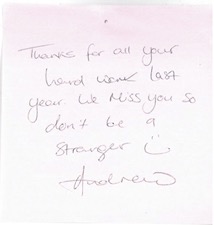 Thanks for all your
hard work last
year. We Miss you so
don't be a
stranger
Andrew